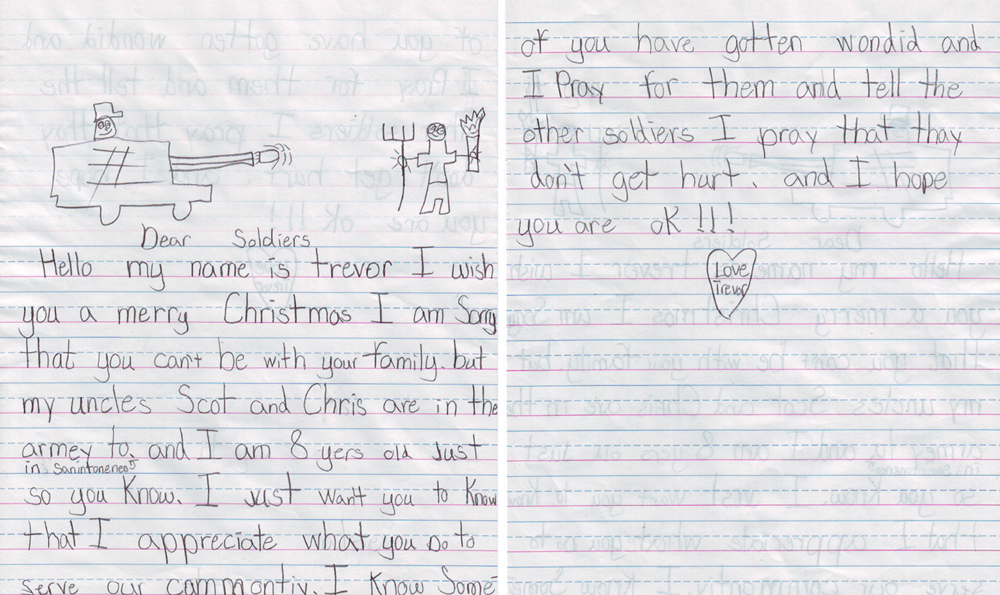 Dear Soldiers
Hello my name is trevor I wish
you a merry Christmas I am Sorry
that you can't be with your family. but
my uncles Scot and Chris are in the
armey to. and I am 8 yers old Just
in sanintoneneo
so you Know. I Just want you to Know
that I appreciate what you Do to
serve our commontiy. I Know Some
of you have gotten wondid and
I Pray for them and tell the
other soldiers I pray that thay
don't get hurt. and I hope
you are ok !!!
Love
Trevor